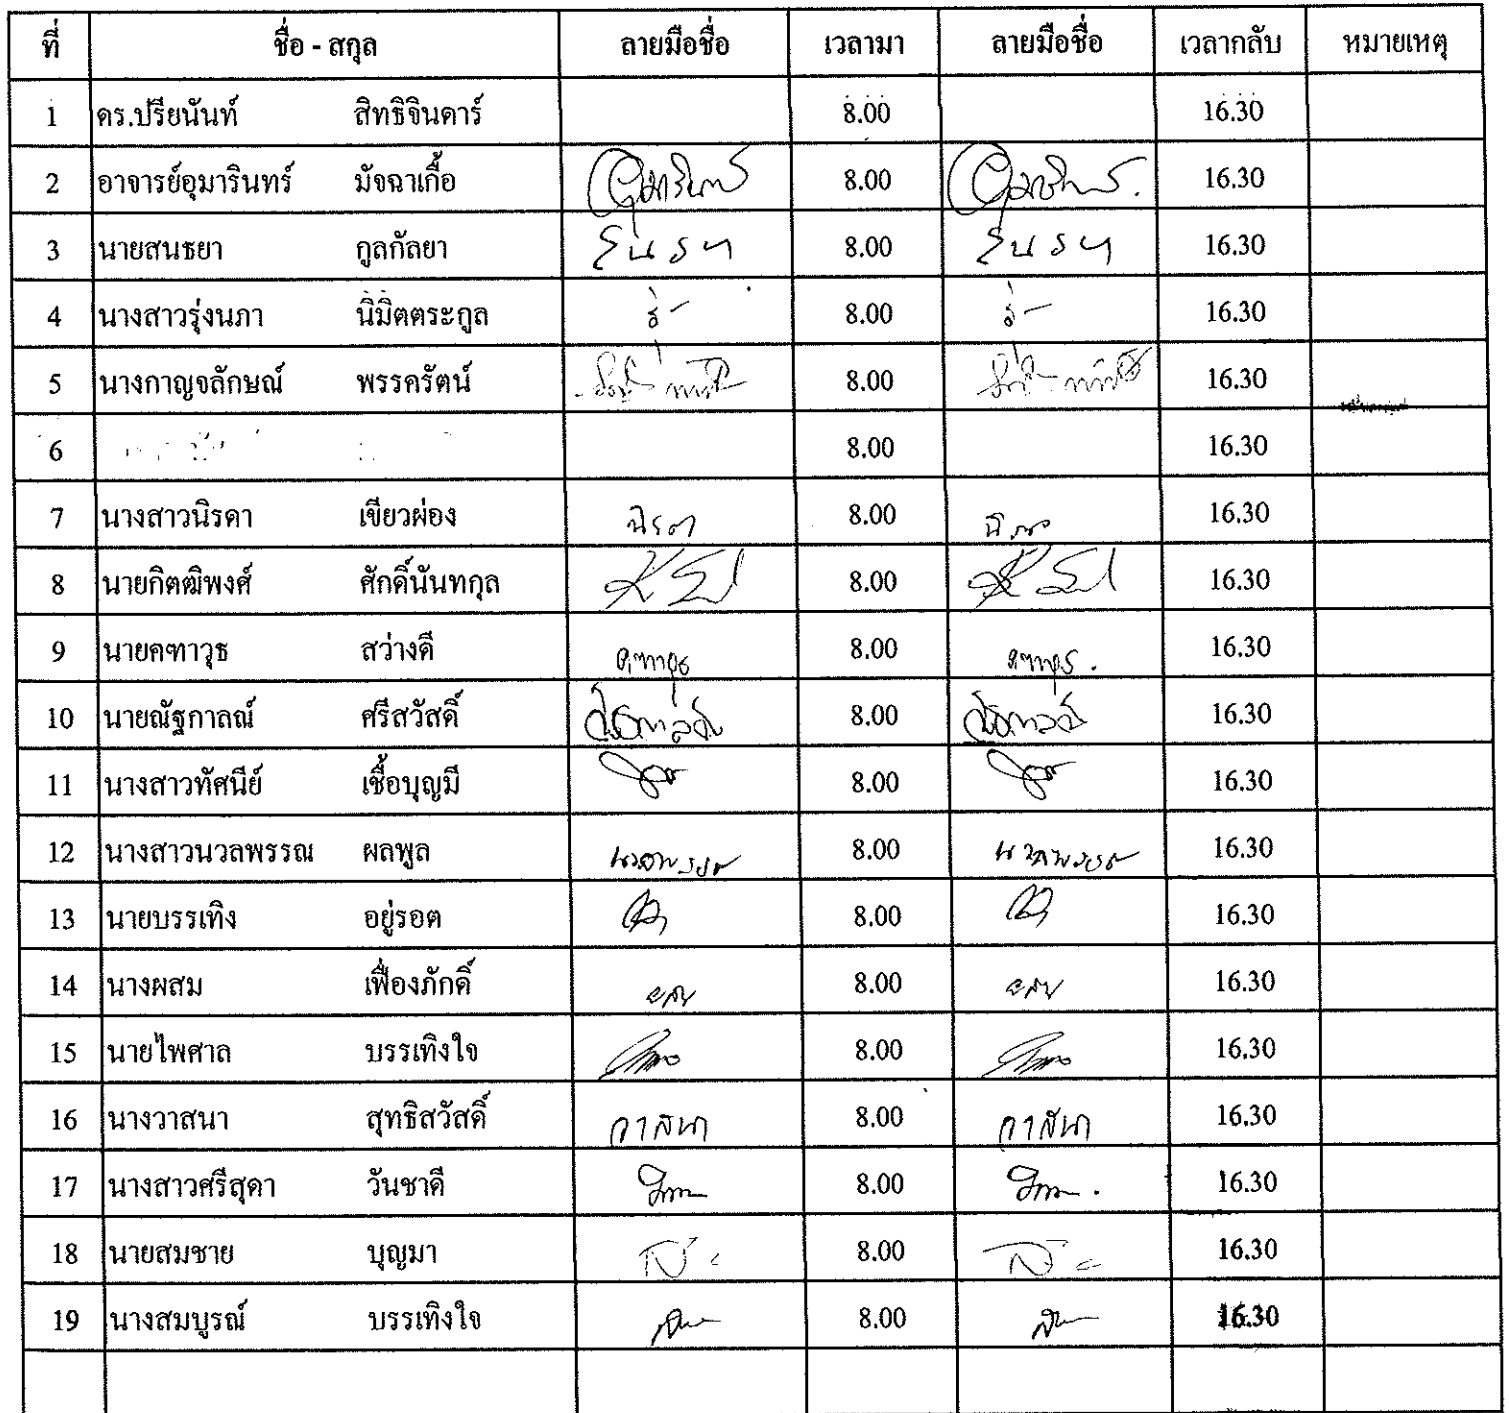 ที่ ชื่อ - สกุล ลายมือชื่อ เวลามา ลายมือชื่อ เวลากลับ หมายเหตุ
1 ดร.ปรียนันท์ สิทธิจินดาร์ 8.00 16.30
2 อาจารย์อุมารินทร์ มัจฉาเกื้อ อุมารินทร์ 8.00 อุมารินทร์. 16.30
3 นายสนธยา กูลกัลยา 8.00 16.30
4 นางสาวรุ่งนภา นิมิตตระกูล 8.00 16.30
5 นางกาญจลักษณ์ พรรครัตน์ 8.00 16.30
6 8.00 16.30
7 นางสาวนิรดา เขียวผ่อง นิรดา 8.00 16.30
8 นายกิตฒิพงศ์ ศักดิ์นันทกุล 8.00 16.30
9 นายคฑาวุธ สว่างดี คฑาวุธ 8.00 คฑาวุธ. 16.30
10 นายณัฐกาลณ์ ศรีสวัสดิ์ 8.00 16.30
11 นางสาวทัศนีย์ เชื้อบุญมี 8.00 16.30
12 นางสาวนวลพรรณ ผลพูล นวลพรรณ 8.00 นวลพรรณ 16.30
13 นายบรรเทิง อยู่รอต 8.00 16.30
14 นางผสม เฟื่องภักดิ์ ผสม 8.00 ผสม 16.30
15 นายไพศาล บรรเทิงใจ 8.00 16.30
16 นางวาสนา สุทธิสวัสดิ์ วาสนา 8.00 วาสนา 16.30
17 นางสาวศรีสุดา วันชาดี 8.00 16.30
18 นายสมชาย บุญมา 8.00 16.30
19 นางสมบูรณ์ บรรเทิงใจ 8.00 16.30